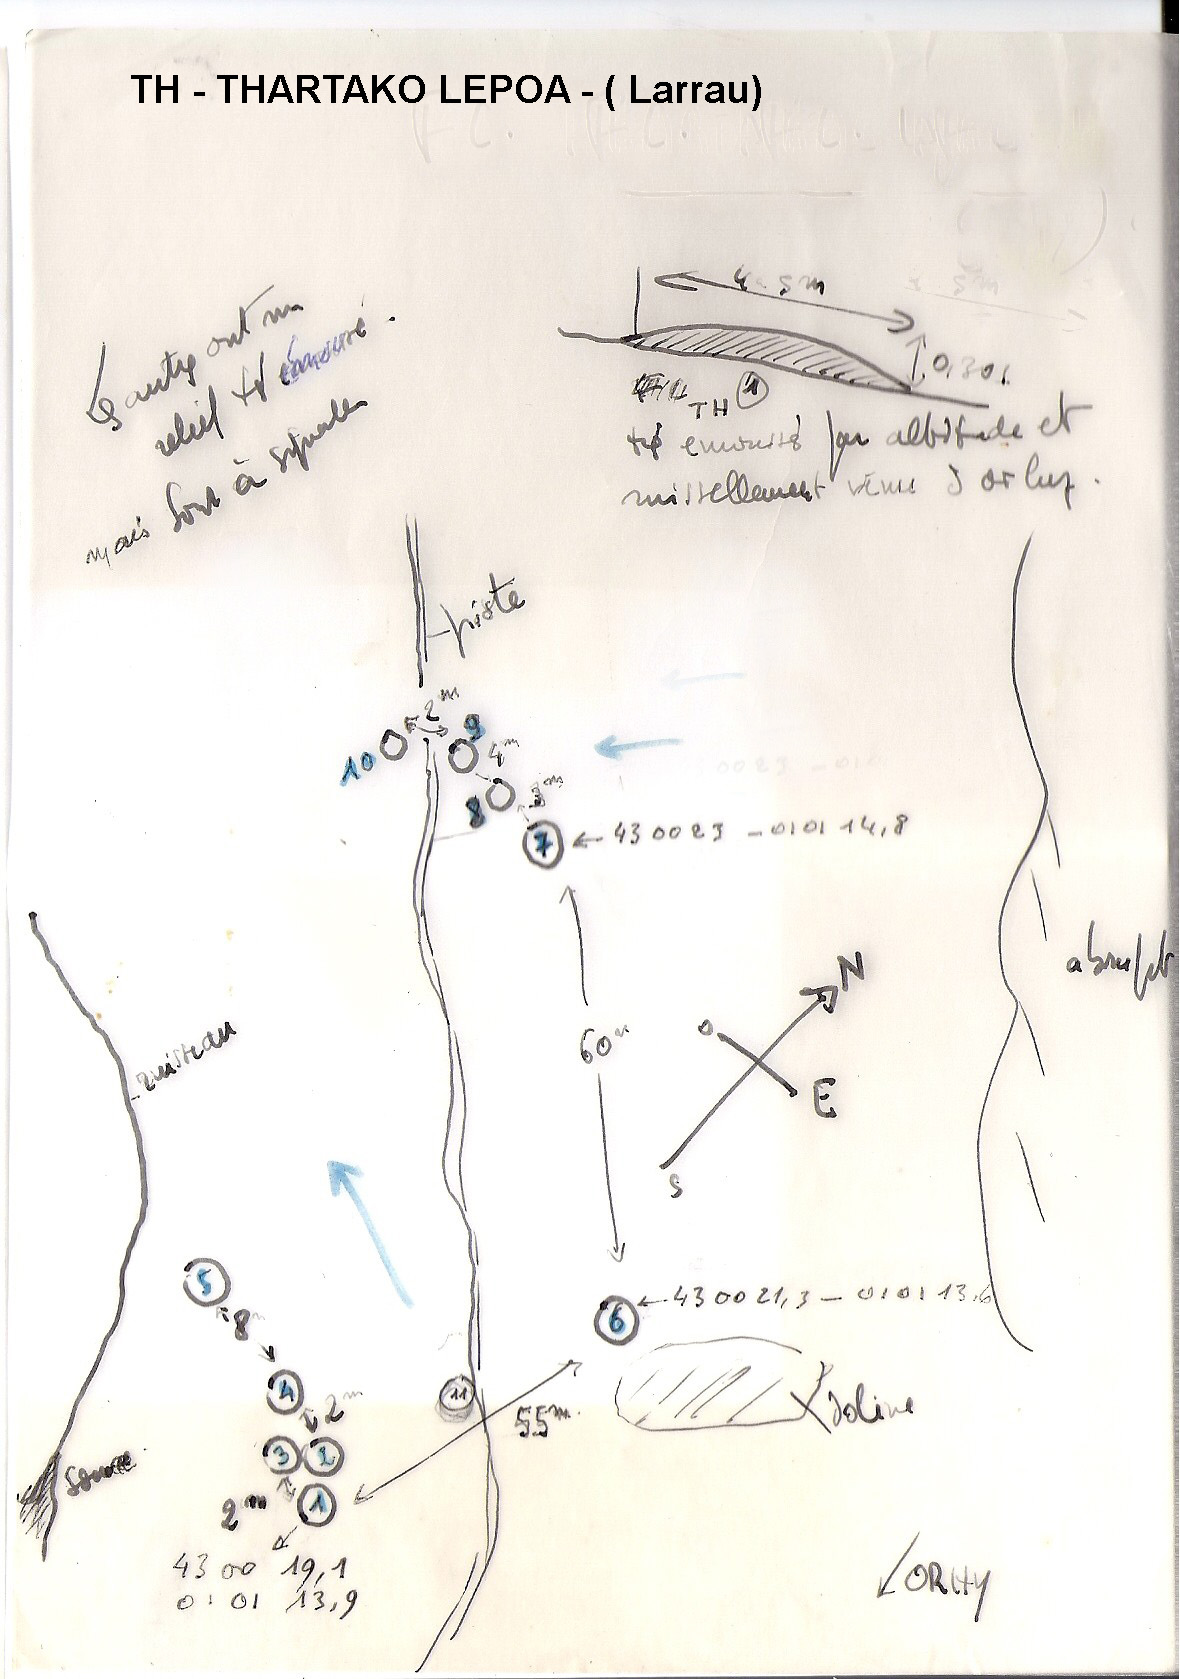 TH - THARTAKO LEPOA - ( Larrau)
4 - 5 m
0,30
TH 1
émoussé par altitude et
ruissellement
Les autres ont un
relief émoussé.
mais sont à signaler
piste
2 m
9
10
4 m
8
3 m
7
← 43 00 23 - 01 01 14,8
abrupt
N
O
60 m
E
S
ruisseau
5
8 m
6
← 43 00 21,3 - 01 01 13,6
4
2 m
11
55 m
doline
3
2
source
1
2 m
43 00 19,1
01 01 13,9
ORHY